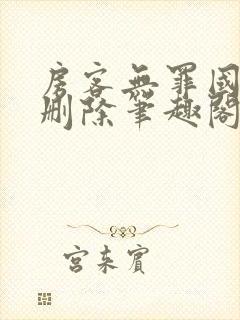 房客無罪國
删除筆趣閣
宮来賓